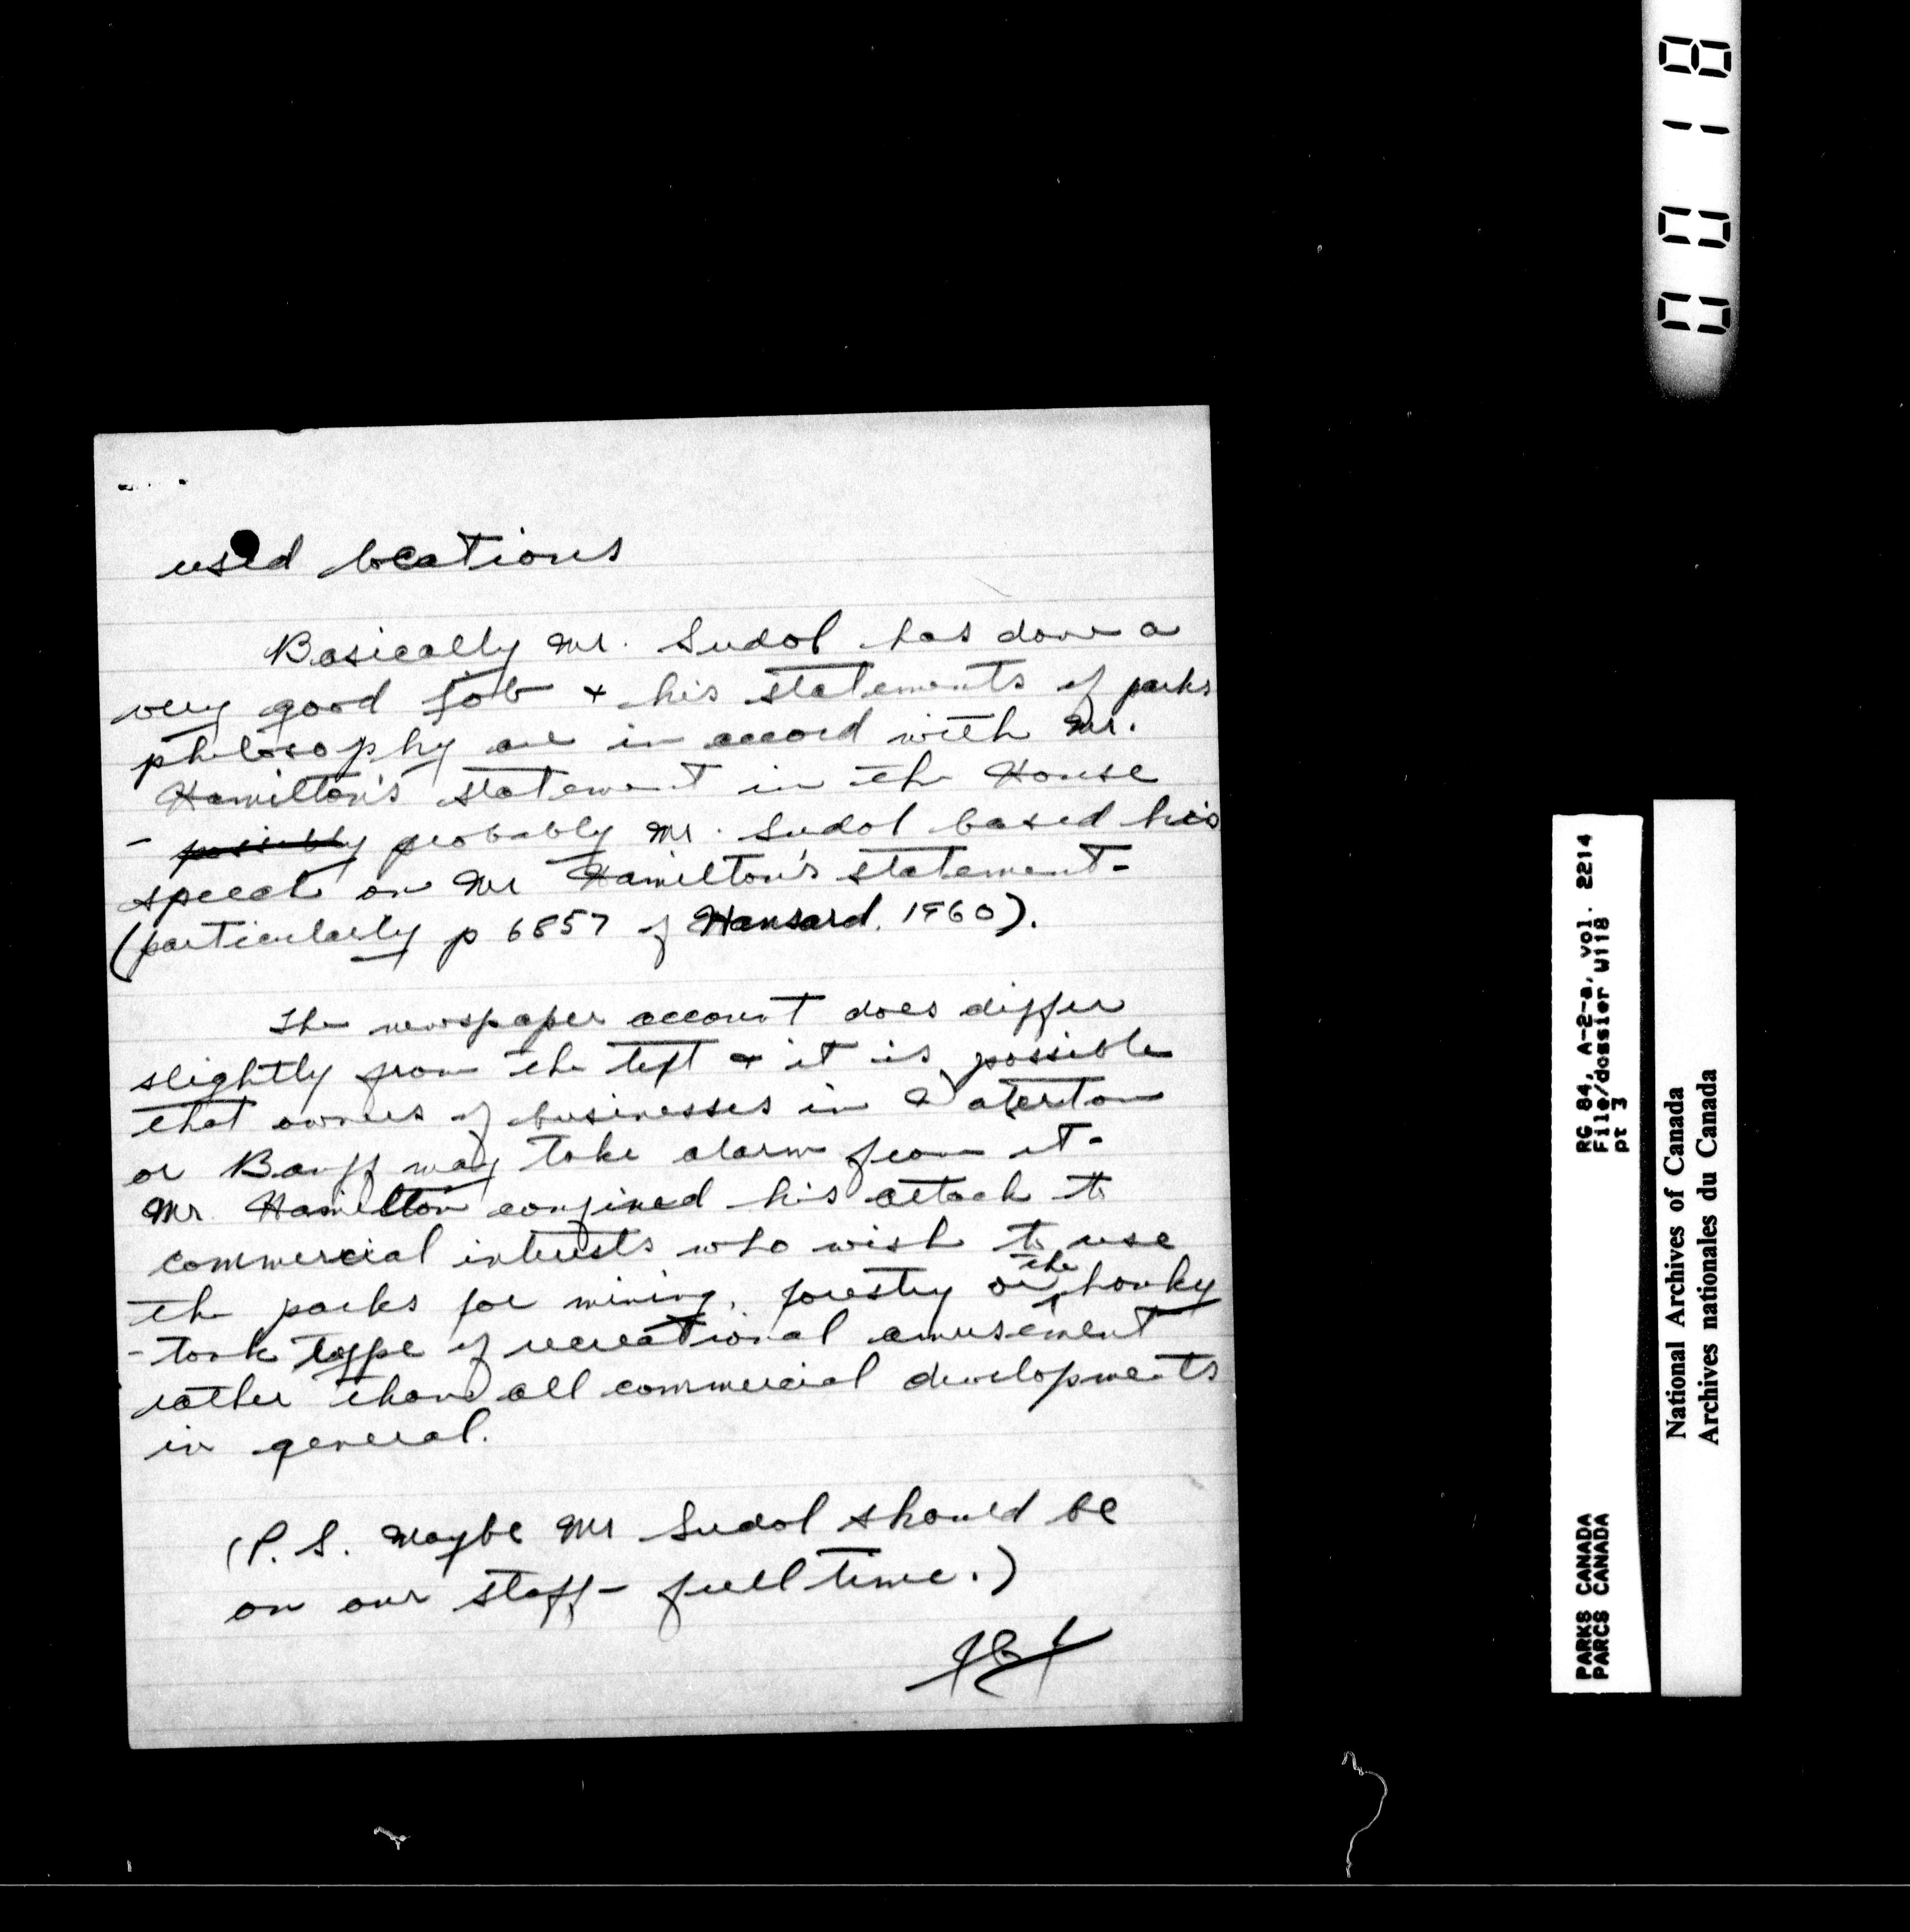 used locations
Basically Mr. Sudol has done a
very good job + his statements of parks
philosophy are in accord with Mr.
Hamilton's statement in the House
- possibly probably Mr. Sudol based his
speech on Mr Hamilton's statement-
(particularly p 6857 of Hansard. 1960).
The newspaper account does differ
slightly from the text + it is possible
that owners of businesses in Waterton
or Banff may take alarm from it-
Mr. Hamilton confined his attack to
commercial interests who wish to use
the parks for mining, forestry or the honky
-tonk type of recreational amusement
rather than all commercial developments
in general.
(P.S. Maybe Mr Sudol should be
on our staff- full time.)
0018
RG 84, A-2-a, vol. 2214
File/dossier W118
pt 3
PARKS CANADA
PARCS CANADA
National Archives of Canada
Archives nationales du Canada